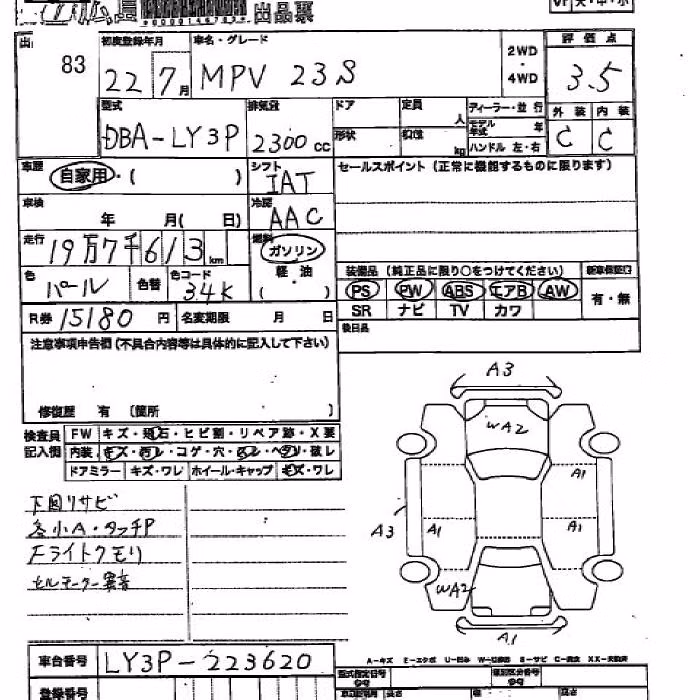 出品票
出 83
初度登録年月 22 7月
車名・グレード MPV 23S
2WD・4WD
評価点 3.5
型式 DBA-LY3P
排気量 2300 cc
ドア 定員 人
形状 kg
ディーラー・並行
モデル年式 年
ハンドル 左・右
外装 内装
C C
車歴 自家用・( )
シフト IAT
セールスポイント (正常に機能するものに限ります)
車検 年 月( 日)
冷房 AAC
走行 19万7千613 km
燃料 ガソリン・軽油・( )
色 パール 色替 色コード 34K
装備品 (純正品に限り○をつけてください)
新車保証書
PS PW ABS エアB AW
有・無
SR ナビ TV カワ
R券 15180 円 名変期限 月 日
後日品
注意事項申告欄 (不具合内容等は具体的に記入して下さい)
修復歴 有 〔箇所 〕
検査員記入欄
FW キズ・飛石・ヒビ割・リペア跡・X要
内装 キズ・汚レ・コゲ・穴・スレ・ヘタリ・破レ
ドアミラー キズ・ワレ ホイール・キャップ キズ・ワレ
下回リサビ
各小A・タッチP
Fライトクモリ
セルモーター異音
A3
WA2
A1
A3
A1
A1
WA2
A1
A-キズ E-エクボ U-凹み W-補修跡 S-サビ C-腐食 XX-交換済
車台番号 LY3P-223620
登録番号
型式指定番号
類別区分番号
長さ 幅 高さ